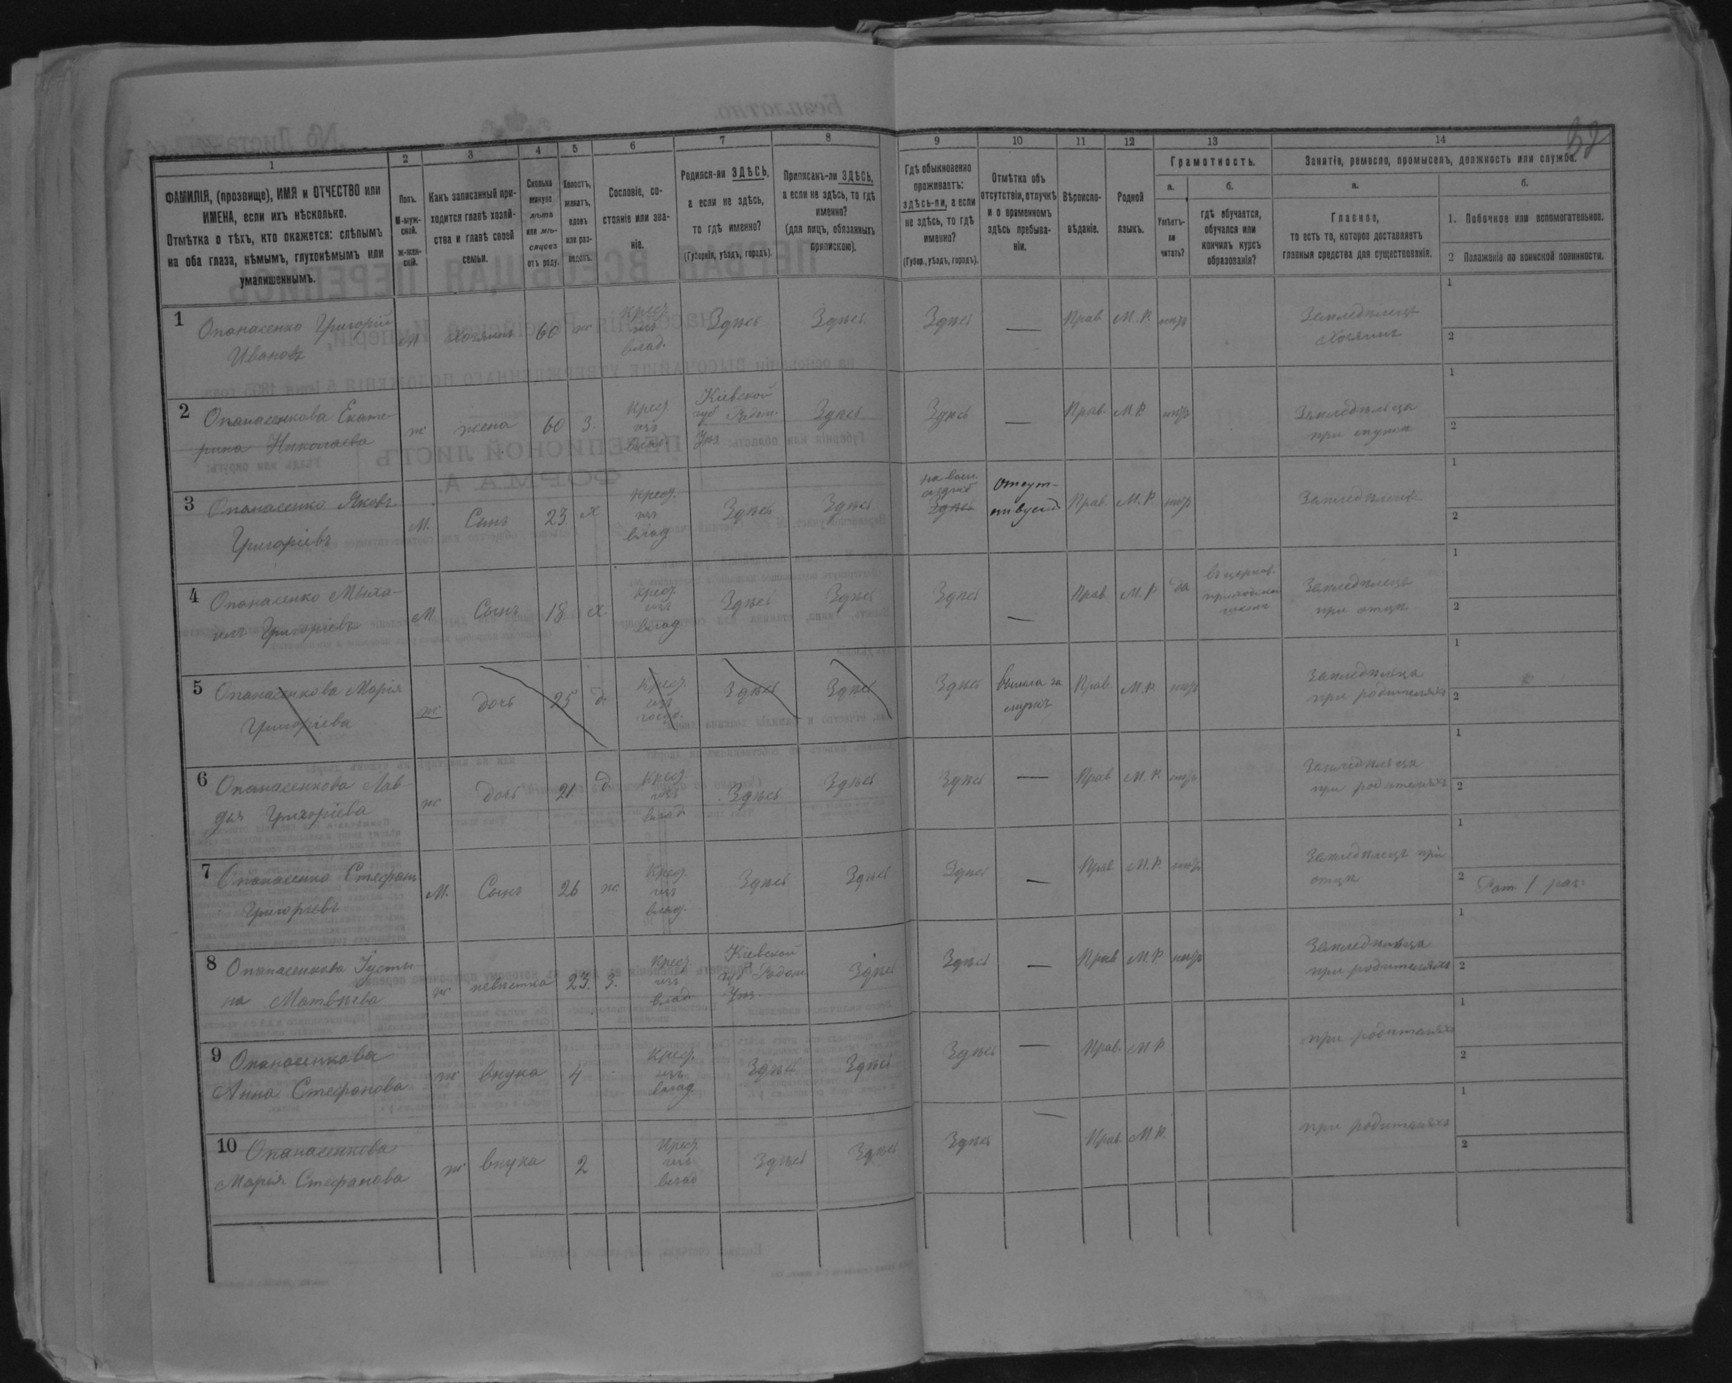 32
1 2 3 4 5 6 7 8 9 10 11 12 13 14
ФАМИЛІЯ, (прозвище), ИМЯ и ОТЧЕСТВО или
ИМЕНА, если ихъ нѣсколько.
Отмѣтка о тѣхъ, кто окажется: слѣпымъ
на оба глаза, нѣмымъ, глухонѣмымъ или
умалишеннымъ.
Полъ.
М-муж-
ской.
Ж-жен-
скій.
Какъ записанный при-
ходится главѣ хозяй-
ства и главѣ своей
семьи.
Сколько
минуло
лѣтъ
или мѣ-
сяцевъ
отъ роду.
Холостъ,
женатъ,
вдовъ
или раз-
веденъ.
Сословіе, со-
стояніе или зва-
ніе.
Родился-ли ЗДѢСЬ,
а если не здѣсь,
то гдѣ именно?
(Губернія, уѣздъ, городъ).
Приписанъ-ли ЗДѢСЬ,
а если не здѣсь, то гдѣ
именно?
(для лицъ, обязанныхъ
припискою).
Гдѣ обыкновенно
проживаетъ:
здѣсь-ли, а если
не здѣсь, то гдѣ
именно?
(Губер., уѣздъ, городъ).
Отмѣтка объ
отсутствіи, отлучкѣ
и о временномъ
здѣсь пребыва-
ніи.
Вѣроиспо-
вѣданіе.
Родной
языкъ.
Грамотность.
а.
Умѣетъ-
ли
читать?
б.
гдѣ обучается,
обучался или
кончилъ курсъ
образованія?
Занятіе, ремесло, промыселъ, должность или служба.
а.
Главное,
то есть то, которое доставляетъ
главныя средства для существованія.
б.
1. Побочное или вспомогательное.
2 Положеніе по воинской повинности.
1 Опанасенко Григорій
Ивановъ
м хозяинъ 60 ж
крест.
изъ
влад.
Здѣсь Здѣсь Здѣсь — Прав. М.Р. нѣтъ
Земледѣлецъ
хозяинъ
1
2
2 Опанасенкова Екате-
рина Николаева
ж жена 60 з.
крест.
изъ
влад.
Кіевской
губ. Радом.
Уѣз.
Здѣсь Здѣсь — Прав. М.Р. нѣтъ
Земледѣлица
при мужѣ
1
2
3 Опанасенко Яковъ
Григоріевъ
М. Сынъ 23 х
крест.
изъ
влад.
Здѣсь Здѣсь
на воен.
службѣ
Здѣсь
отсут-
ствуетъ
Прав. М.Р. нѣтъ
Земледѣлецъ
1
2
4 Опанасенко Мыха-
илъ Григоріевъ
М. Сынъ 18 х
крест.
изъ
влад.
Здѣсь Здѣсь Здѣсь — Прав. М.Р. да
въ церков.
приходской
школѣ
Земледѣлецъ
при отцѣ
1
2
5 Опанасенкова Марія
Григоріева
ж дочь 25 д
крест.
изъ
Здѣсь Здѣсь Здѣсь
вышла за
мужъ
Прав. М.Р. нѣтъ
Земледѣлица
при родителяхъ
1
2
6 Опанасенкова Яв-
дья Григоріева
ж дочь 21 д
крест.
изъ
влад.
Здѣсь Здѣсь Здѣсь — Прав. М.Р. нѣтъ
Земледѣлица
при родителяхъ
1
2
7 Опанасенко Стефанъ
Григорьевъ
М. Сынъ 26 ж
крест.
изъ
влад.
Здѣсь Здѣсь Здѣсь — Прав. М.Р. нѣтъ
Земледѣлецъ при
отцѣ
1
2 Рат. 1 раз.
8 Опанасенкова Іусты-
на Матвѣева
ж невѣстка 23 з.
крест.
изъ
влад.
Кіевской
губ. Радом.
Уѣз.
Здѣсь Здѣсь — Прав. М.Р. нѣтъ
Земледѣлица
при родителяхъ
1
2
9 Опанасенкова
Анна Стефанова
ж внука 4
крест.
изъ
влад.
Здѣсь Здѣсь Здѣсь — Прав. М.Р.
при родителяхъ
1
2
10 Опанасенкова
Марья Стефанова
ж внука 2
крест.
изъ
влад.
Здѣсь Здѣсь Здѣсь — Прав. М.Р.
при родителяхъ
1
2